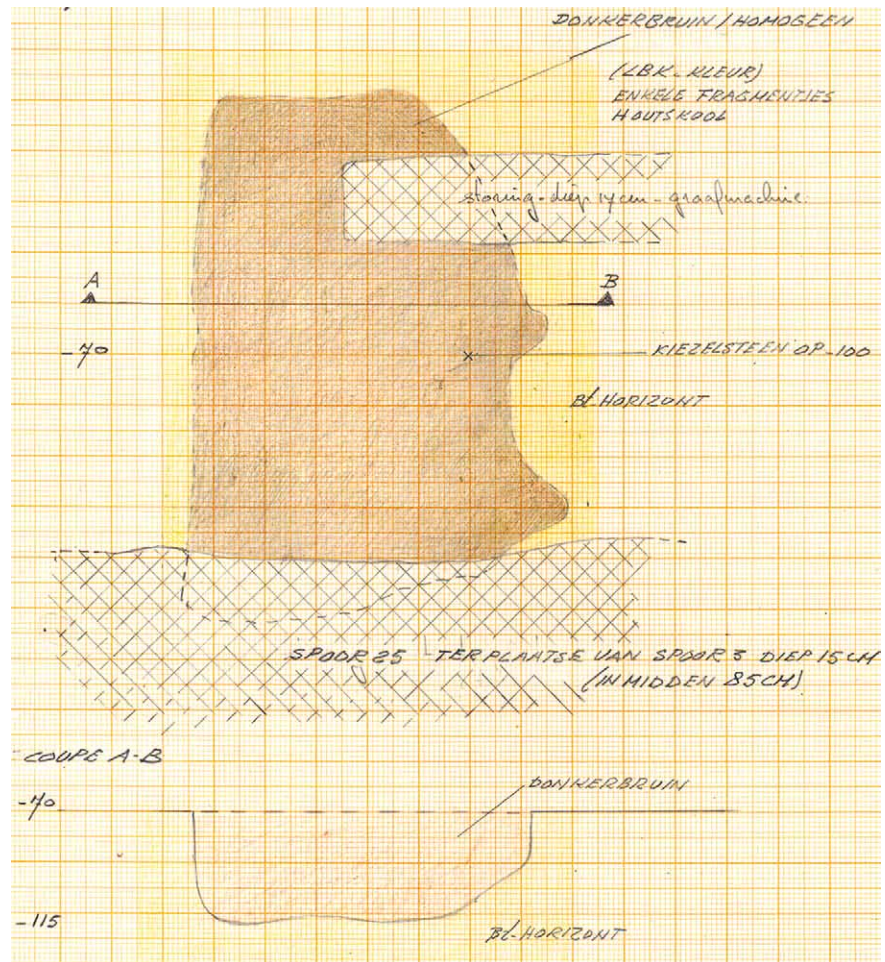 DONKERBRUIN / HOMOGEEN
(LBK-KLEUR)
ENKELE FRAGMENTJES
HOUTSKOOL
storing-diep 14cm-graafmachine.
A
B
-70
KIEZELSTEEN OP -100
Bt-HORIZONT
SPOOR 25 TER PLAATSE VAN SPOOR 3 DIEP 15 CM
(IN MIDDEN 85CM)
COUPE A-B
DONKERBRUIN
-70
-115
Bt-HORIZONT